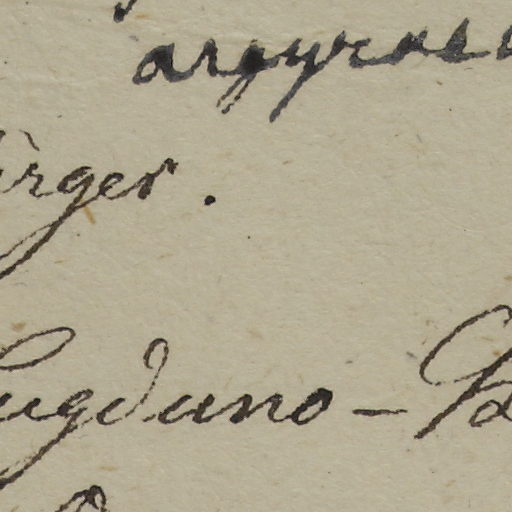 argyras
ürger.
Lugduno-Ba